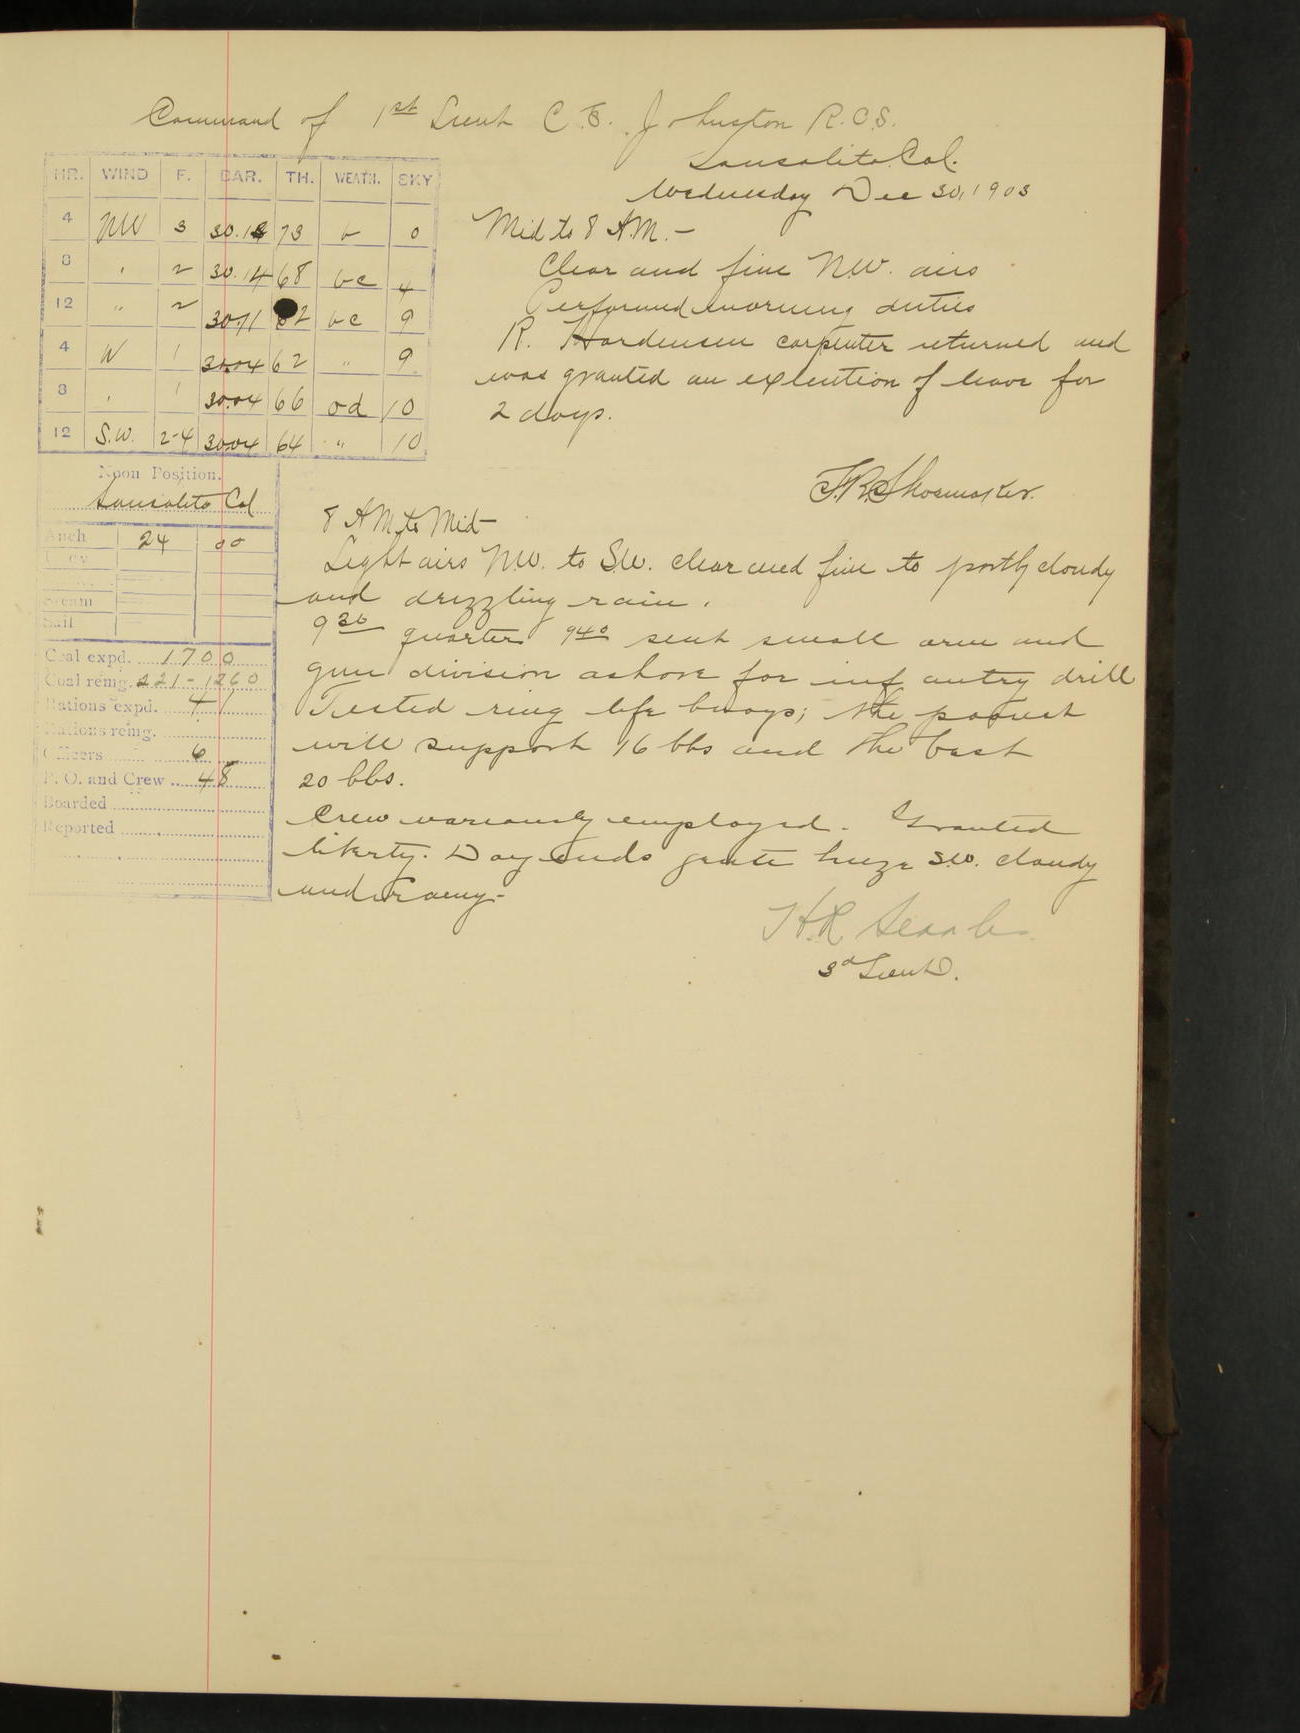 Command of 1st Lieut C.E. Johnston R.C.S.
Sausalito Cal.
Wednesday Dec 30, 1903
HR. WIND F. BAR. TH. WEATH. SKY
4 NW 3 30.18 73 b 0
8 " 2 30.14 68 bc 4
12 " 2 30.11 62 bc 9
4 W 1 30.04 62 " 9
8 " 1 30.04 66 od 10
12 S.W. 2-4 30.04 64 " 10
Noon Position.
Sausalito Cal
Anch 24 00
Steam
Sail
Coal expd. 1700
Coal remg. 221-1260
Rations expd. 41
Rations remg.
Officers 6
P. O. and Crew 48
Boarded
Reported
Mid to 8 A.M. -
Clear and fine N.W. airs
Performed morning duties
R. Hardensen carpenter returned and
was granted an extention of leave for
2 days.
F.R. Shoemaker.
8 AM to Mid-
Light airs N.W. to S.W. clear and fine to partly cloudy
and drizzling rain.
9 30 quarters 9 40 sent small arm and
gun division ashore for infantry drill
Tested ring life buoys; the poorest
will support 16 lbs and the best
20 lbs.
Crew variously employed. Granted
liberty. Day ends gentle breeze S.W. cloudy
and rainy -
H.R. Searles
3d Lieut.